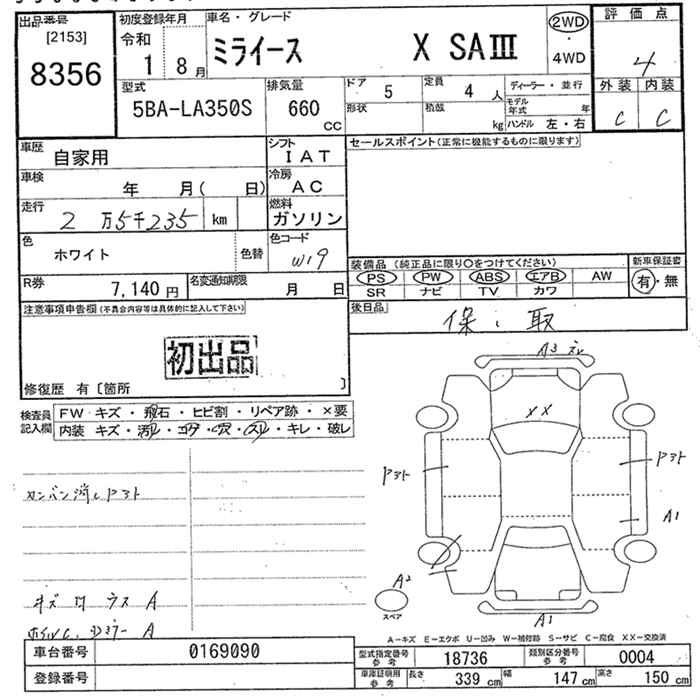 出品番号
[2153]
8356
初度登録年月
令和
1 8 月
車名・グレード
ミライース X SAⅢ
2WD
・
4WD
評価点
4
外装 内装
C C
型式
5BA-LA350S
排気量
660
CC
ドア
5
定員
4 人
形状
積載
kg
ディーラー・並行
モデル年式 年
ハンドル 左・右
車歴
自家用
シフト
IAT
車検
年 月( 日)
冷房
AC
走行
2 万5千235 km
燃料
ガソリン
色
ホワイト
色替
色コード
W19
R券
7,140 円
名変通知期限
月 日
セールスポイント(正常に機能するものに限ります)
装備品 (純正品に限り○をつけてください)
PS PW ABS エアB AW
SR ナビ TV カワ
新車保証書
有・無
後日品
保、取
注意事項申告欄(不具合内容等は具体的に記入して下さい)
初出品
修復歴 有〔箇所 〕
検査員
記入欄
FW キズ・飛石・ヒビ割・リペア跡・×要
内装 キズ・汚れ・コゲ・穴・スレ・キレ・破レ
カンバン消しPアト
A3
XX
Pアト
Pアト
A1
A2
スペア
A1
A
A
A-キズ E-エクボ U-凹み W-補修跡 S-サビ C-腐食 XX-交換済
車台番号
0169090
登録番号
型式指定番号
参考
18736
類別区分番号
参考
0004
車庫証明用
参考
長さ 339 cm
幅 147 cm
高さ 150 cm